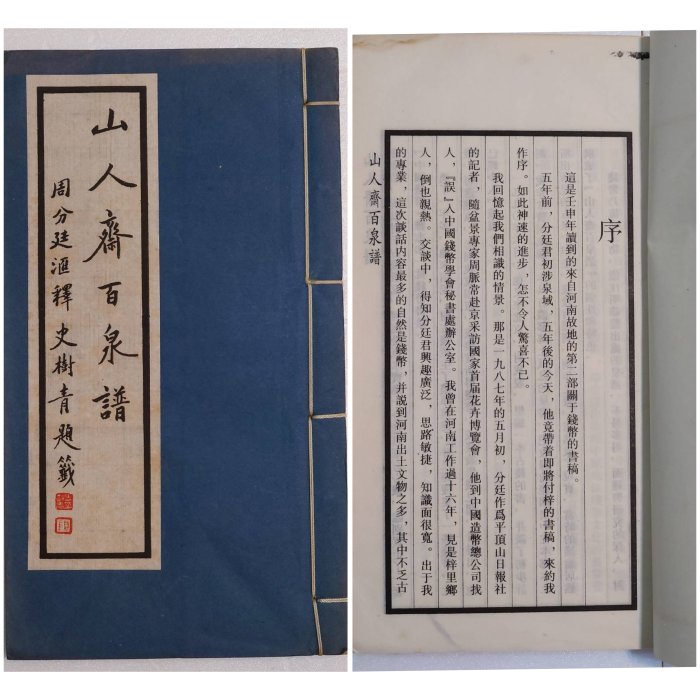 山人齋百泉譜
周分廷滙釋 史樹青題籤
序
這是壬申年讀到的來自河南故地的第二部關于錢幣的書稿。
五年前，分廷君初涉泉域，五年後的今天，他竟帶着即將付梓的書稿，來約我
作序。如此神速的進步，怎不令人驚喜不已。
我回憶起我們相識的情景。那是一九八七年的五月初，分廷作爲平頂山日報社
的記者，隨盆景專家周脈常赴京采訪國家首届花卉博覽會，他到中國造幣總公司找
人，『誤』入中國錢幣學會秘書處辦公室。我曾在河南工作過十六年，見是梓里鄉
人，倒也親熱。交談中，得知分廷君興趣廣泛，思路敏捷，知識面很寬。出于我
的專業，這次談話内容最多的自然是錢幣，并説到河南出土文物之多，其中不乏古
山人齋百泉譜